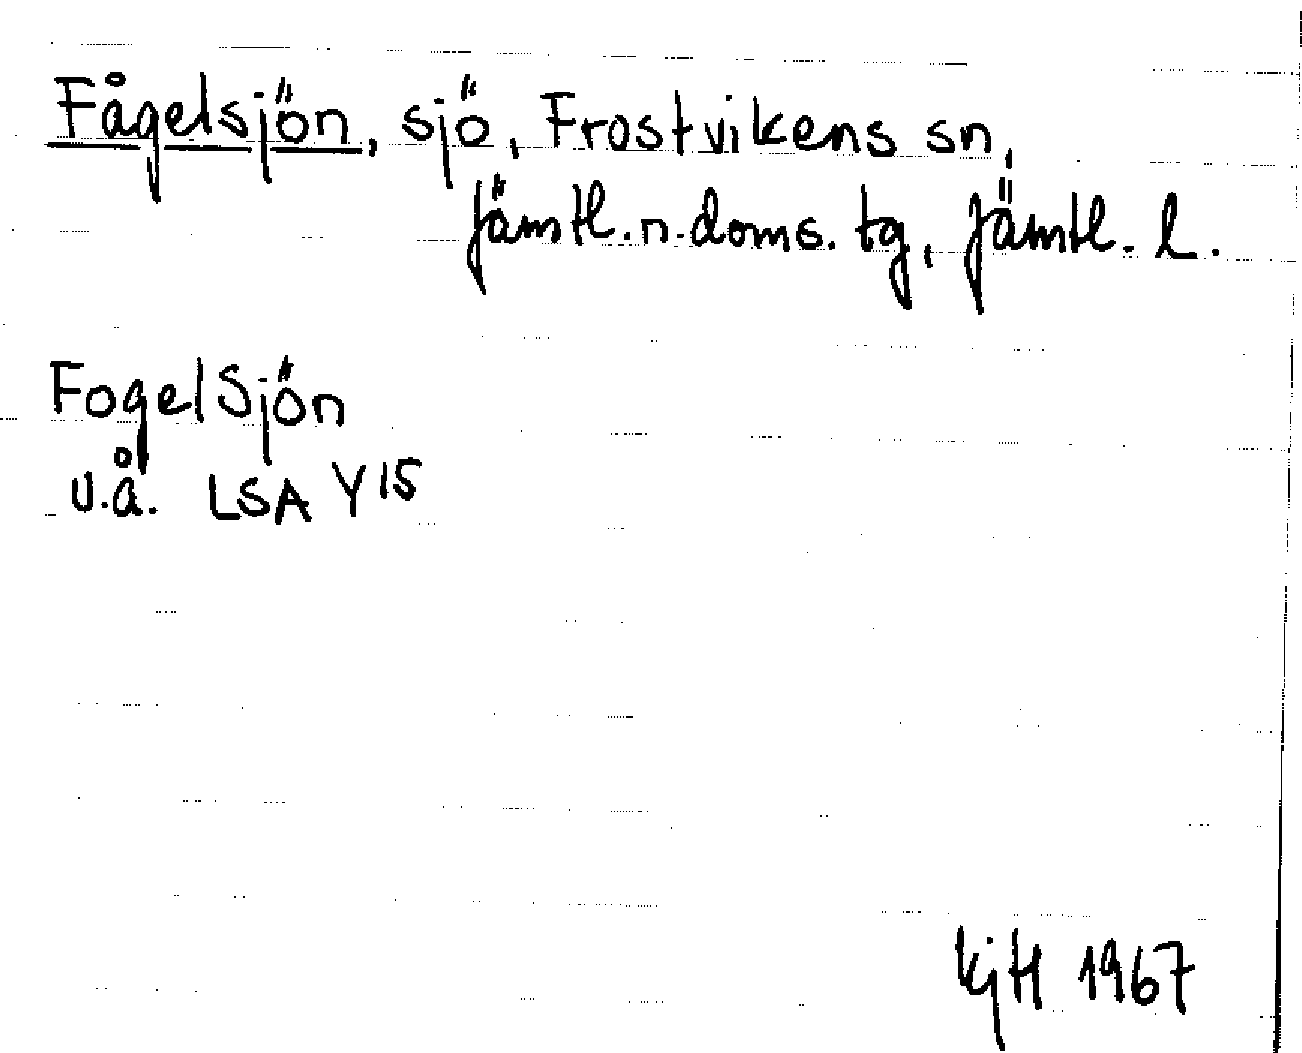 Fågelsjön, sjö, Frostvikens sn,
Jämtl. n. doms. tg, Jämtl. l.
Fogelsjön
u.å. LSA Y15
KjH 1967